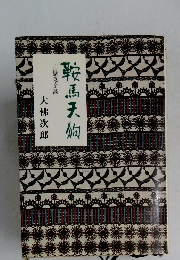 鞍馬天狗
大佛次郎